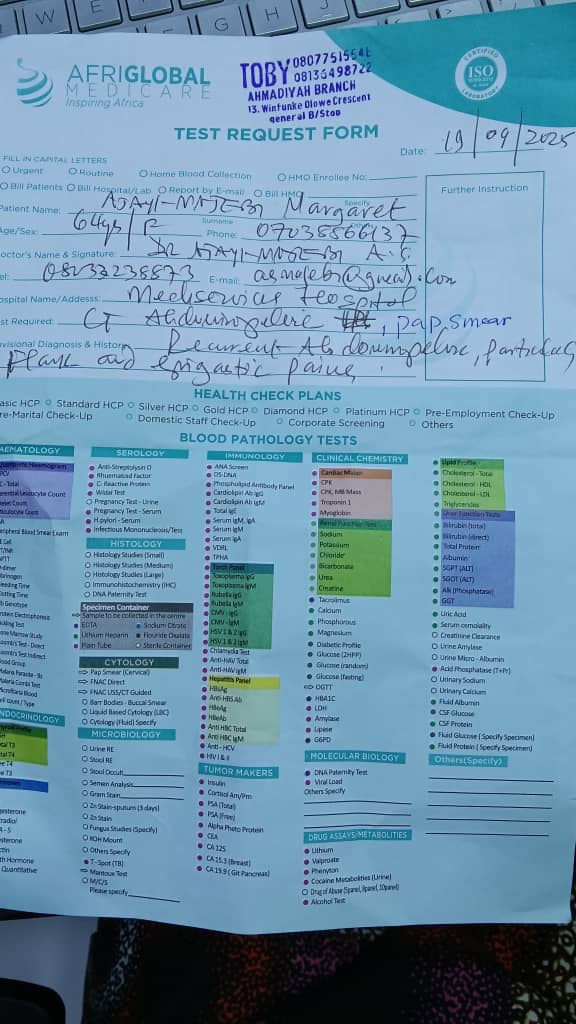 W E
G H J
AFRIGLOBAL
MEDICARE
Inspiring Africa
TOBY 08077515548
08136498722
AHMADIYAH BRANCH
13. Winfunke Olowe Crescent
general B/Stop
CERTIFIED
ISO
LABORATORY
TEST REQUEST FORM
Date: 19/09/2025
FILL IN CAPITAL LETTERS
Urgent Routine Home Blood Collection HMO Enrollee No:
Bill Patients Bill Hospital/Lab Report by E-mail Bill HMO
Specify
Further Instruction
Patient Name: AJAYI-MAJEBI Margaret
Surname
Age/Sex: 64yrs/F Phone: 07038566137
octor's Name & Signature: DR AJAYI-MAJEBI A.
el: 08033238873 E-mail: asmajebi@gmail.com
ospital Name/Address: Mediservices Hospital
st Required: CT Abdominopelvic, pap smear
ovisional Diagnosis & History Recurrent Abdominopelvic, particularly
Flank and epigastric pains.
HEALTH CHECK PLANS
asic HCP Standard HCP Silver HCP Gold HCP Diamond HCP Platinum HCP Pre-Employment Check-Up
re-Marital Check-Up Domestic Staff Check-Up Corporate Screening Others
BLOOD PATHOLOGY TESTS
AEMATOLOGY
PCV
erential Leucocyte Count
telet Count
ticulocyte Count
eripheral Blood Smear Exam
E Cell
T/INR
PTT
d-dimer
brinogen
eeding Time
otting Time
b Genotype
otein Electrophoresis
ckling Test
one Marrow Study
oomb's Test - Direct
oomb's Test Indirect
ood Group
alaria Parasite - Bs
alaria Combi Test
icrofilaria Blood
ell count / Type
NDOCRINOLOGY
tal T3
tal T4
ee T4
ee T3
gesterone
radiol
A - S
osterone
ctin
th Hormone
Quantitative
SEROLOGY
Anti-Streptolysin O
Rheumatoid Factor
C- Reactive Protein
Widal Test
Pregnancy Test - Urine
Pregnancy Test - Serum
H.pylori - Serum
Infectious Mononucleosis/Test
HISTOLOGY
Histology Studies (Small)
Histology Studies (Medium)
Histology Studies (Large)
Immunohistochemistry (IHC)
DNA Paternity Test
Specimen Container
Sample to be collected in the centre
EDTA Sodium Citrate
Lithium Heparin Flouride Oxalate
Plain Tube Sterile Container
CYTOLOGY
Pap Smear (Cervical)
FNAC Direct
FNAC USS/CT Guided
Barr Bodies - Buccal Smear
Liquid Based Cytology (LBC)
Cytology (Fluid) Specify
MICROBIOLOGY
Urine RE
Stool RE
Stool Occult
Semen Analysis
Gram Stain
Zn Stain-sputum (3 days)
Zn Stain
Fungus Studies (Specify)
KOH Mount
Others Specify
T - Spot (TB)
Mantoux Test
M/C/S
Please specify
IMMUNOLOGY
ANA Screen
DS-DNA
Phospholipid Antibody Panel
Cardiolipin Ab IgG
Cardiolipin Ab IgM
Total IgE
Serum IgM, IgA
Serum IgM
Serum IgA
VDRL
TPHA
Torch Panel
Toxoplasma IgG
Toxoplasma IgM
Rubella IgG
Rubella IgM
CMV - IgG
CMV - IgM
HSV 1 & 2 IgG
HSV 1 & 2 IgM
Chlamydia Test
Anti-HAV Total
Anti-HAV IgM
Hepatitis Panel
HBsAg
Anti-HBS Ab
HBeAg
HBeAb
Anti HBC Total
Anti HBC IgM
Anti - HCV
HIV I & II
TUMOR MAKERS
Insulin
Cortisol Am/Pm
PSA (Total)
PSA (Free)
Alpha Pheto Protein
CEA
CA 125
CA 15.3 (Breast)
CA 19.9 (Git Pancreas)
CLINICAL CHEMISTRY
Cardiac Maker
CPK
CPK, MB Mass
Troponin 1
Myoglobin
Renal Function Test
Sodium
Potassium
Chloride
Bicarbonate
Urea
Creatine
Tacrolimus
Calcium
Phosphorous
Magnesium
Diabetic Profile
Glucose (2HPP)
Glucose (random)
Glucose (fasting)
OGTT
HBA1C
LDH
Amylase
Lipase
G6PD
MOLECULAR BIOLOGY
DNA Paternity Test
Viral Load
Others Specify
DRUG ASSAYS/METABOLITIES
Lithium
Valproate
Phenyton
Cocaine Metabolities (Urine)
Drug of Abuse (5panel, 8panel, 10panel)
Alcohol Test
Lipid Profile
Cholesterol - Total
Cholesterol - HDL
Cholesterol - LDL
Triglycerides
Liver Function Tests
Bilirubin (total)
Bilirubin (direct)
Total Protein
Albumin
SGPT (ALT)
SGOT (ALT)
Alk (Phosphatase)
GGT
Uric Acid
Serum osmolality
Creatinine Clearance
Urine Amylase
Urine Micro - Albumin
Acid Phosphatase (T+Pr)
Urinary Sodium
Urinary Calcium
Fluid Albumin
CSF Glucose
CSF Protein
Fluid Glucose ( Specify Specimen)
Fluid Protein ( Specify Specimen)
Others(Specify)